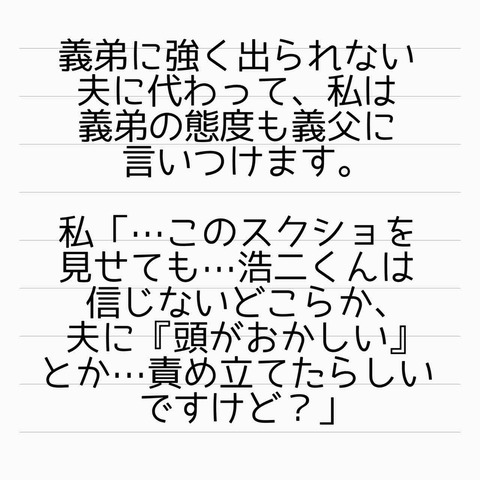 義弟に強く出られない
夫に代わって、私は
義弟の態度も義父に
言いつけます。
私「…このスクショを
見せても…浩二くんは
信じないどこらか、
夫に『頭がおかしい』
とか…責め立てたらしい
ですけど？」